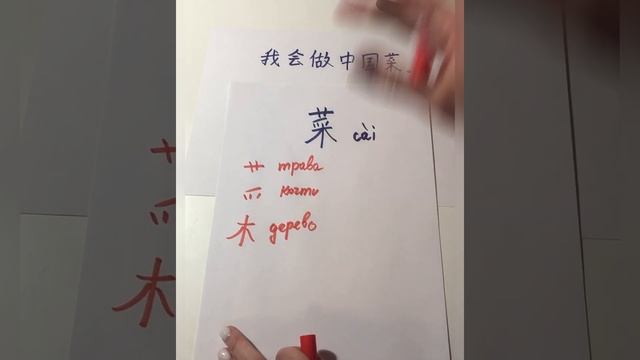 我会做中国菜
菜 cài
艹 трава
爫 когти
木 дерево